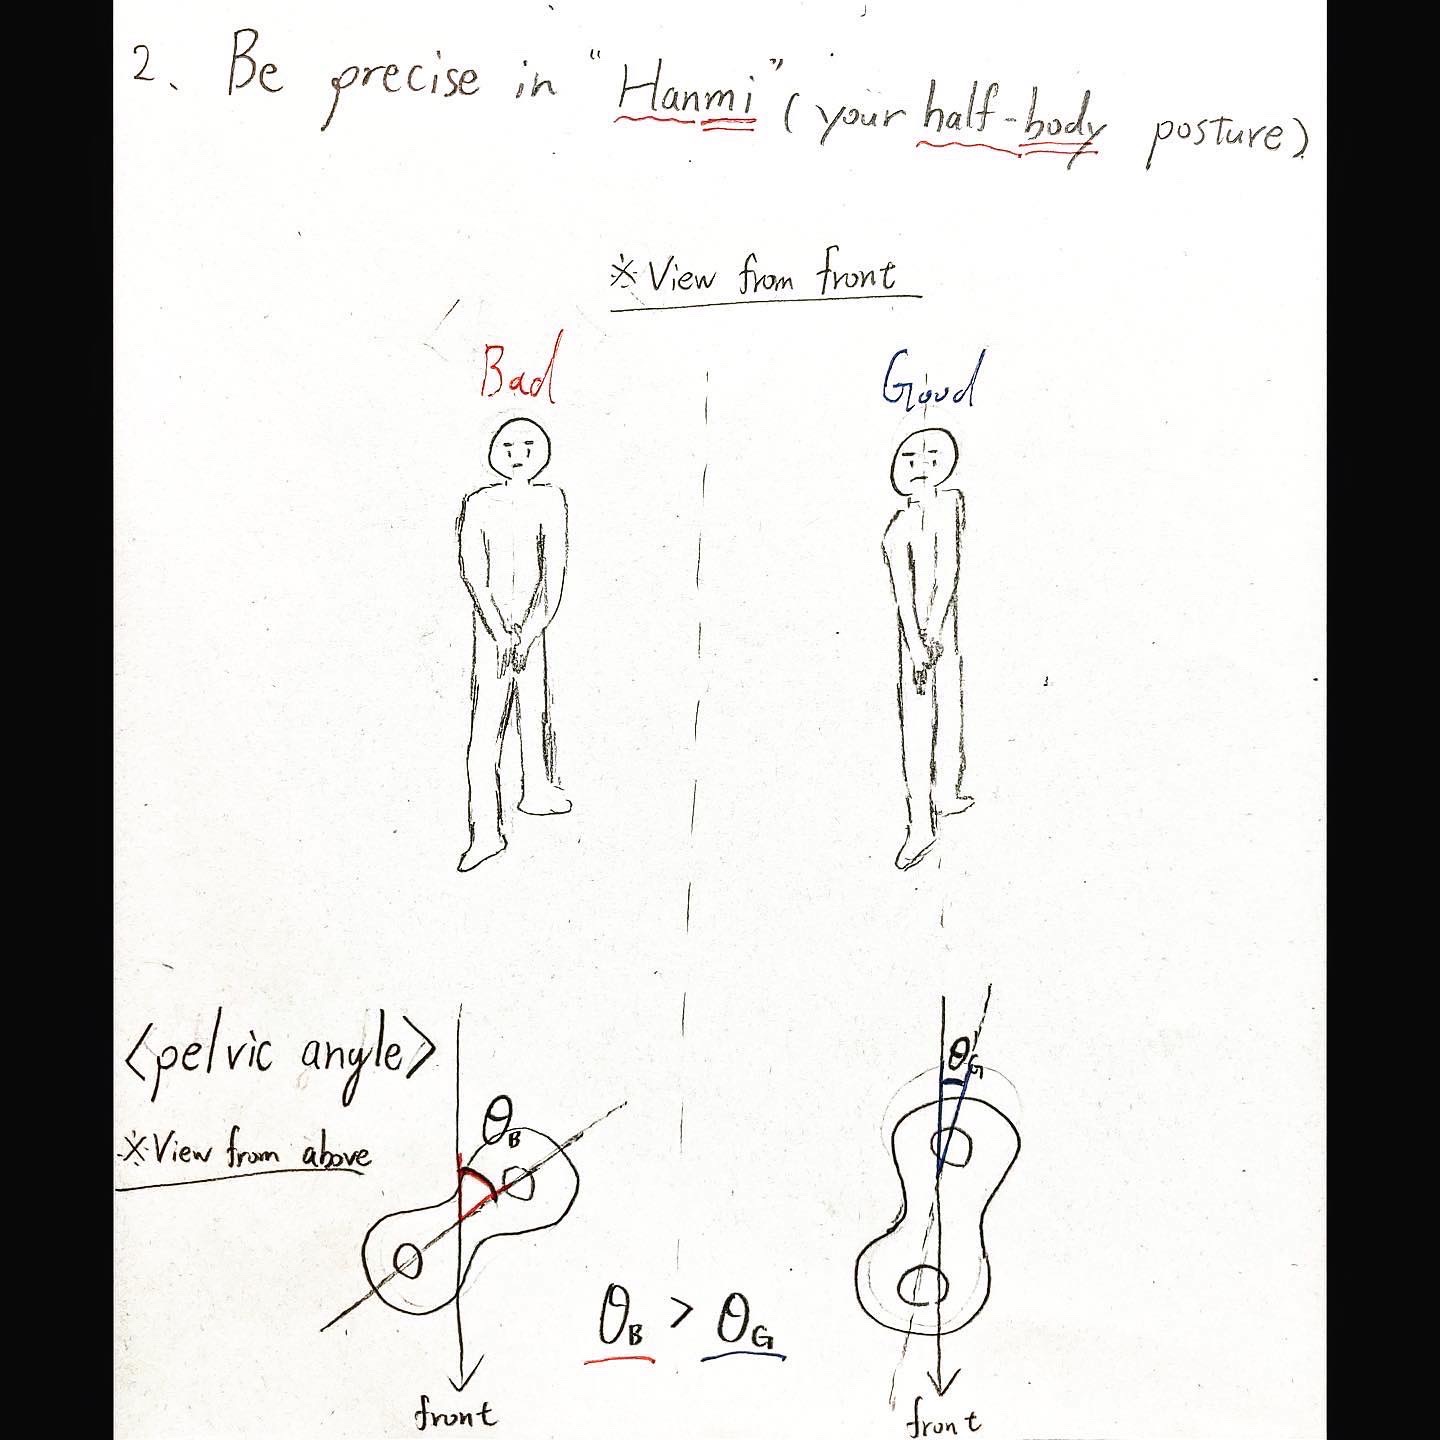 2. Be precise in "Hanmi" (your half-body posture)
※ View from front
Bad
Good
<pelvic angle>
※ View from above
θB
θG
θB > θG
front
front